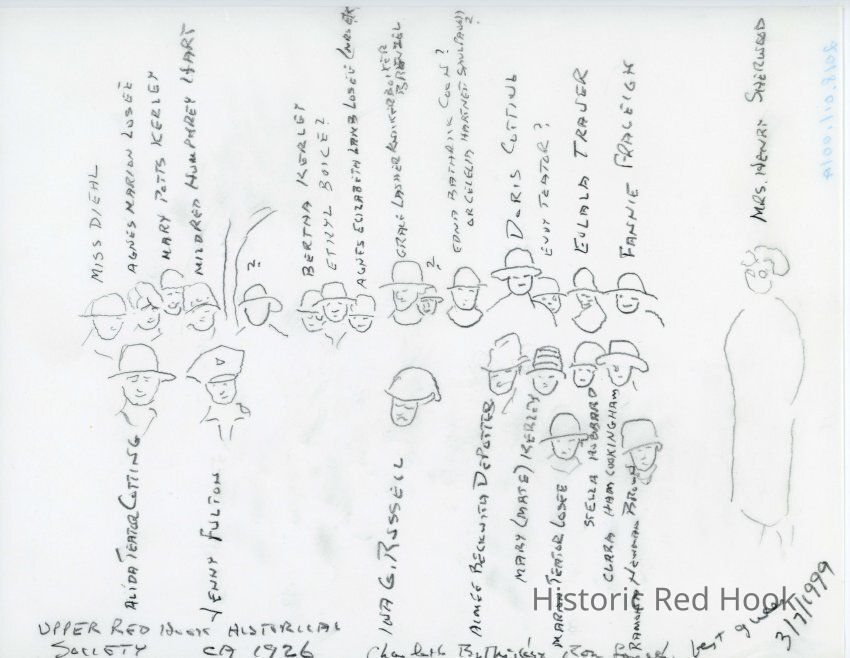 MISS DIEHL
AGNES MARION LOSEE
MARY POTTS KERLEY
MILDRED HUMPHREY HART
?
BERTHA KERLEY
ETHYL BOICE?
AGNES ELIZABETH LAMB LOSEE
GRACE LASHER
?
EDNA
OR CELELIA HARINET
?
DORIS COTTING
EVVY TEATOR?
EULALA TRAVER
FANNIE FRALEIGH
MRS. HENRY SHERWOOD
ALIDA TEATOR COTTING
JENNY FULTON
INA G. RUSSELL
AIMEE BECKWITH DEPOTTER
MARY (MATE) KERLEY
MARION TEATOR LOSEE
STELLA HUBBARD
CLARA HAM COOKINGHAM
RAMONA NEWMAN BROWN
UPPER RED HOOK HISTORICAL
SOCIETY CA 1926
best guess
3/7/1999
Historic Red Hook